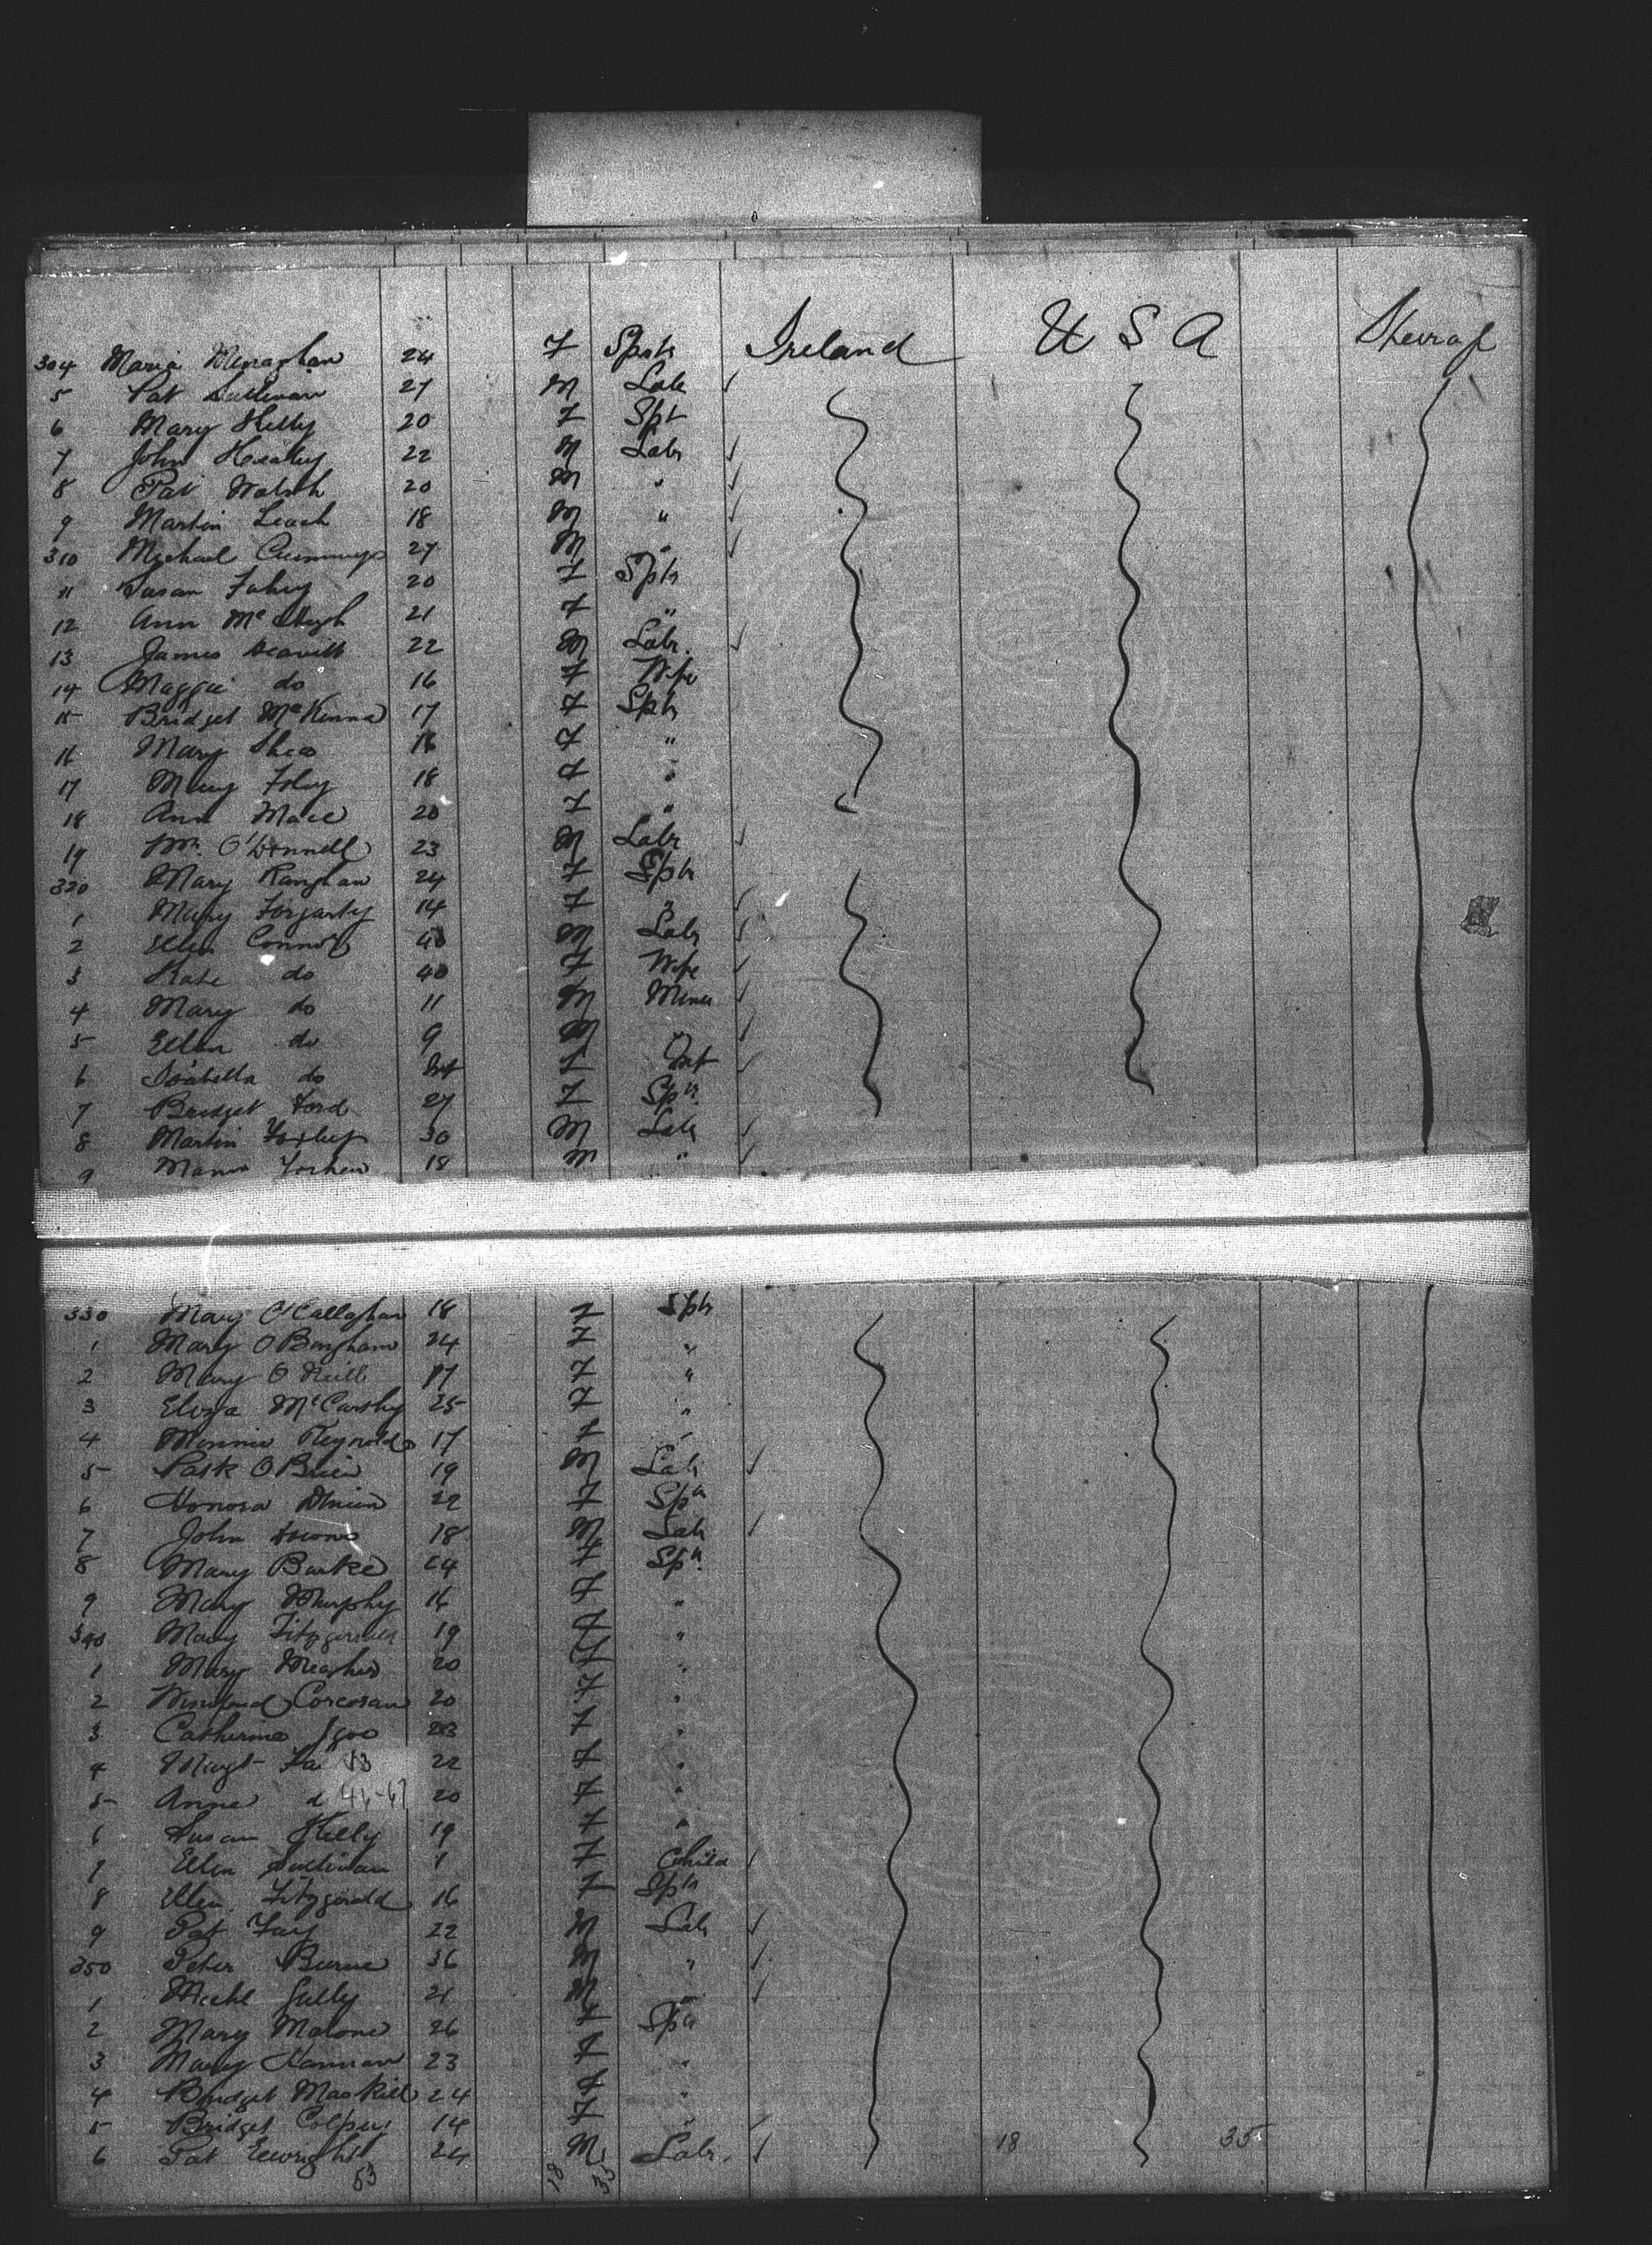 304 Maria Menaghan 24 F Sps Ireland U S A Steerage
5 Pat Sullivan 27 M Labr ✓
6 Mary Kelly 20 F Spr
7 John Healey 22 M Labr ✓
8 Pat Walsh 20 M " ✓
9 Martin Leach 18 M " ✓
310 Michael Cummings 27 M " ✓
11 Susan Fahey 20 F Sptr
12 Ann McHugh 21 F "
13 James 22 M Labr. ✓
14 Maggie do 16 F Wife
15 Bridget McKenna 17 F Sptr
16 Mary Shea 16 F "
17 Mary Foley 18 F "
18 Ann Mace 20 F "
19 Wm. O'Donnell 23 M Labr ✓
320 Mary 24 F Sptr
1 Mary Forgarty 14 F " ✓
2 Ellen Connor 40 M Labr ✓
3 Kate do 40 F Wife ✓
4 Mary do 11 M Minor ✓
5 Ellen do 9 M " ✓
6 Isabella do Inf F Inf ✓
7 Bridget Ford 27 F Spr
8 Martin 30 M Labr ✓
9 18 M " ✓
330 Mary O'Callaghan 18 F Sptr
1 Mary O Bingham 24 F "
2 Mary O Neill 17 F "
3 Eliza McCarthy 25 F "
4 Minnie Reynolds 17 F "
5 Patk O Brien 19 M Labr ✓
6 Honora 22 F Spr
7 John Downs 18 M Labr ✓
8 Mary Burke 24 F Spr
9 Mary Murphy 16 F "
340 Mary Fitzgerald 19 F "
1 Mary Meagher 20 F "
2 Winifred Corcoran 20 F "
3 Catherine Igoe 23 F "
4 Margt Fa 13 22 F "
5 Anne d 44-47 20 F "
6 Susan Kelly 19 F "
7 Ellen Sullivan 1 F Child ✓
8 Ellen Fitzgerald 16 F Spr
9 Pat Fay 22 M Labr ✓
350 Peter Burne 36 M " ✓
1 Michl Gully 21 M " ✓
2 Mary Malone 26 F Spr
3 Mary Hannan 23 F "
4 Bridget 24 F "
5 Bridget 14 F " ✓
6 Pat 24 M Labr. ✓ 18 35
53 18 35